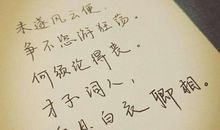 未遂风云便，
争不恣游狂荡。
何须论得丧。
才子词人，
自是白衣卿相。